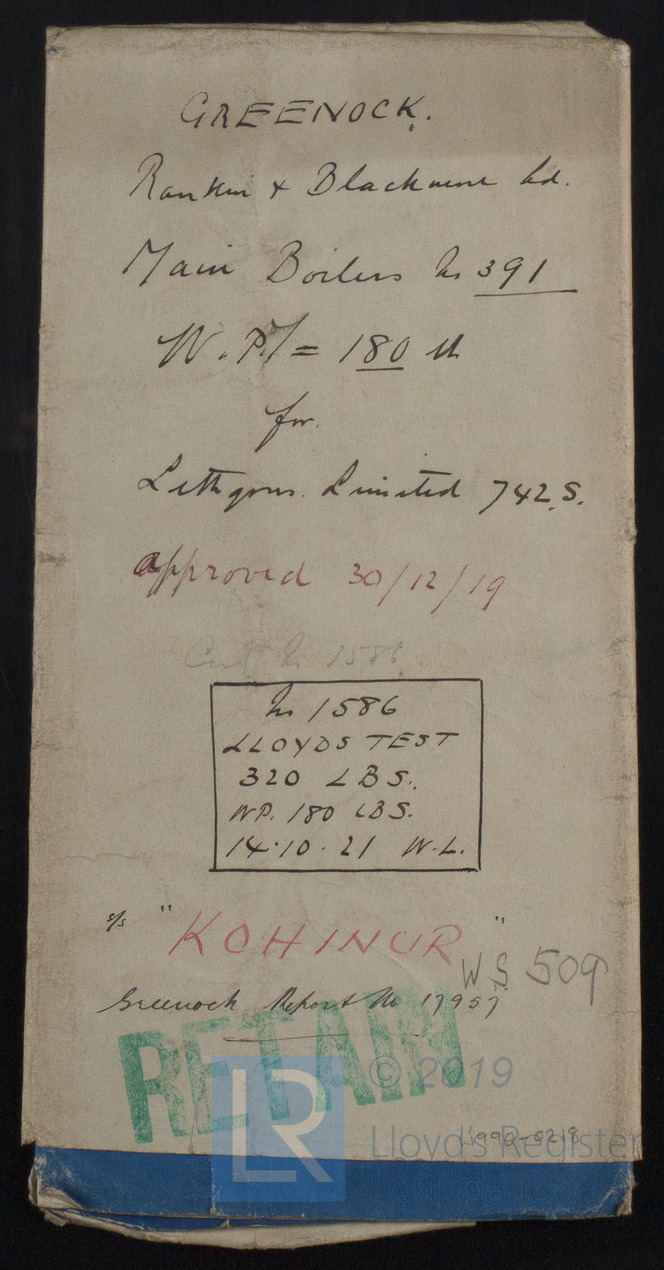 GREENOCK.
Rankin & Blackmore Ld.
Main Boilers No 391
W.P. = 180 lb
for
Lithgows Limited 742.S.
approved 30/12/19
Cert No 1586
No 1586
LLOYDS TEST
320 LBS.
WP. 180 LBS.
14.10.21 W.L.
s/s "KOHINUR"
WS 509
Greenock Report No 17957
RETAIN
© 2019
LR
Lloyd's Register
Foundation